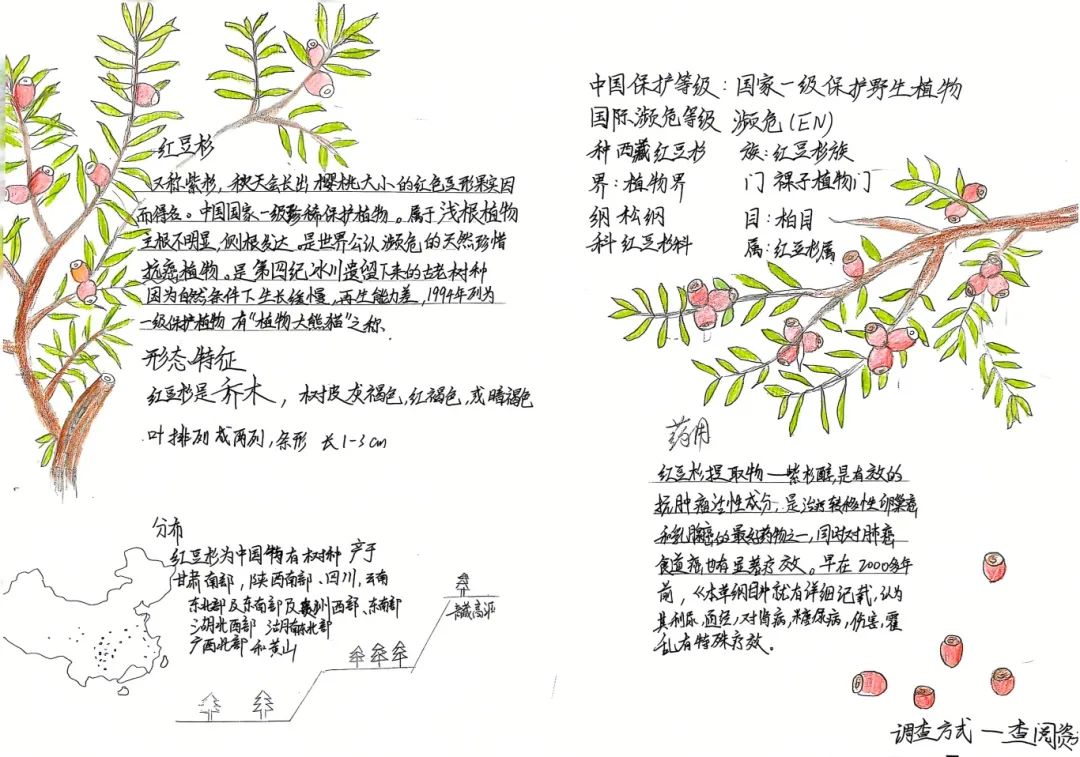 红豆杉
又称紫杉，秋天会长出樱桃大小的红色豆形果实因
而得名。中国国家一级珍稀保护植物。属于浅根植物
主根不明显，侧根发达。是世界公认濒危的天然珍惜
抗癌植物。是第四纪冰川遗留下来的古老树种
因为自然条件下生长缓慢，再生能力差，1994年列为
一级保护植物 有“植物大熊猫”之称、
形态特征
红豆杉是乔木，树皮灰褐色，红褐色，或暗褐色
叶排列成两列，条形 长1-3cm
分布
红豆杉为中国特有树种 产于
甘肃南部，陕西南部、四川，云南
东北部及东南部及贵州西部、东南部
湖北西部 湖南东北部
广西北部 和黄山
藏高原
中国保护等级：国家一级保护野生植物
国际濒危等级 濒危(EN)
种 西藏红豆杉 族：红豆杉族
界：植物界 门 裸子植物门
纲 松纲 目：柏目
科 红豆杉科 属：红豆杉属
药用
红豆杉提取物—紫杉醇，是有效的
抗肿瘤活性成分，是治疗转移性卵巢癌
和乳腺癌的最好药物之一，同时对肺癌
食道癌也有显著疗效。早在2000多年
前，《本草纲目》中就有详细记载，认为
其利尿，通经，对肾病，糖尿病，伤害，霍
乱有特殊疗效。
调查方式 — 查阅资